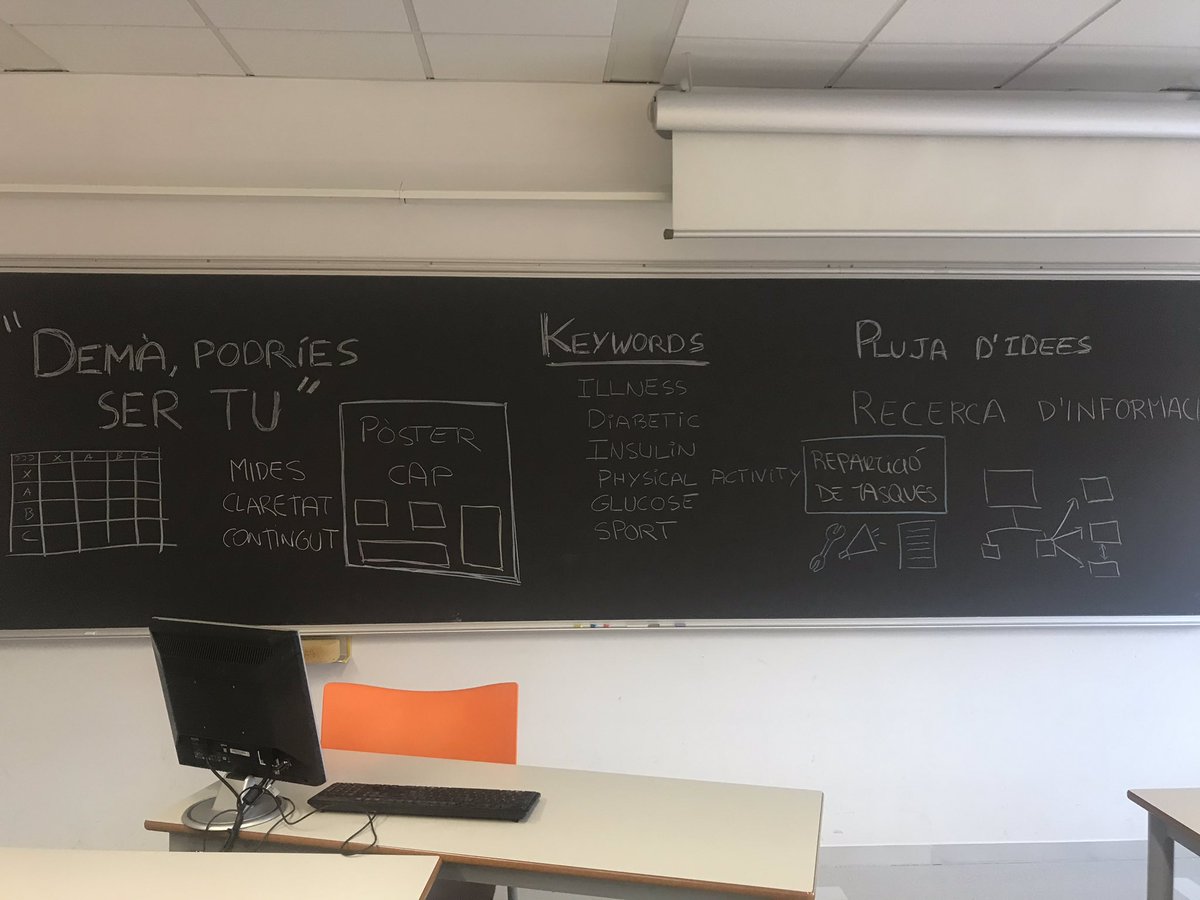 "DEMÀ, PODRÍES
SER TU"
>>> X A B C
X
A
B
C
MIDES
CLARETAT
CONTINGUT
PÒSTER
CAP
KEYWORDS
ILLNESS
DIABETIC
INSULIN
PHYSICAL ACTIVITY
GLUCOSE
SPORT
PLUJA D'IDEES
RECERCA D'INFORMACI
REPARTICIÓ
DE TASQUES